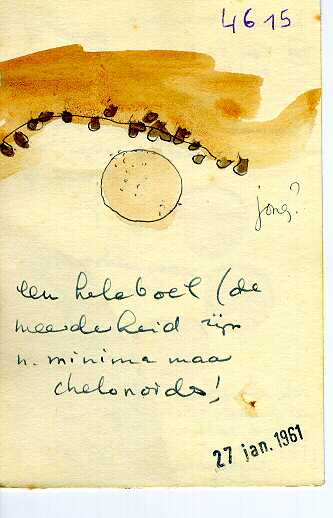 4615
jong?
een heleboel (de
meerderheid zijn
n. minima maar
chelonoids!
27 jan. 1961